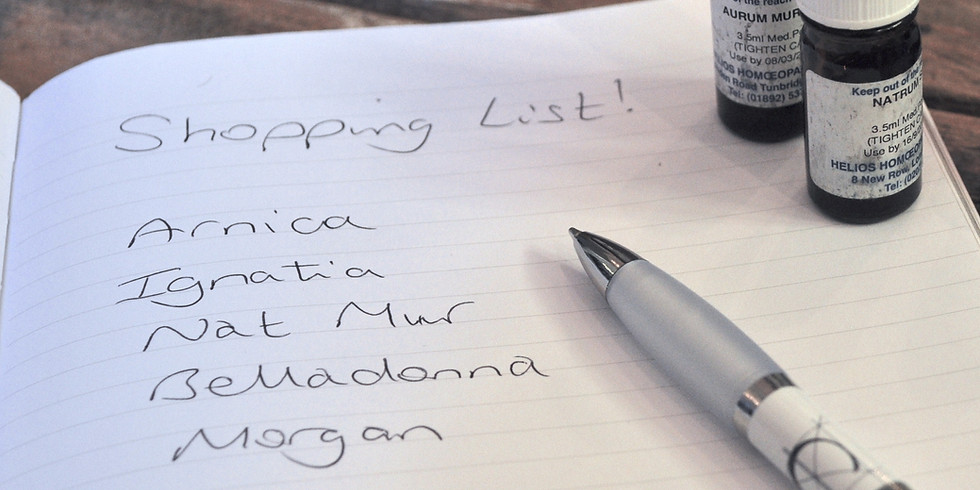 Shopping List!
Arnica
Ignatia
Nat Mur
Belladonna
Morgan
of the reach
AURUM MUR
3.5ml Med.P
(TIGHTEN CA
Use by 08/03/2
HELIOS HOMŒOPA
Road Tunbridg
Tel: (01892) 53
Keep out of the
NATRUM
3.5ml Med.
(TIGHTEN
Use by 16/
HELIOS HOMŒOP
8 New Row, Lo
Tel: (020
C